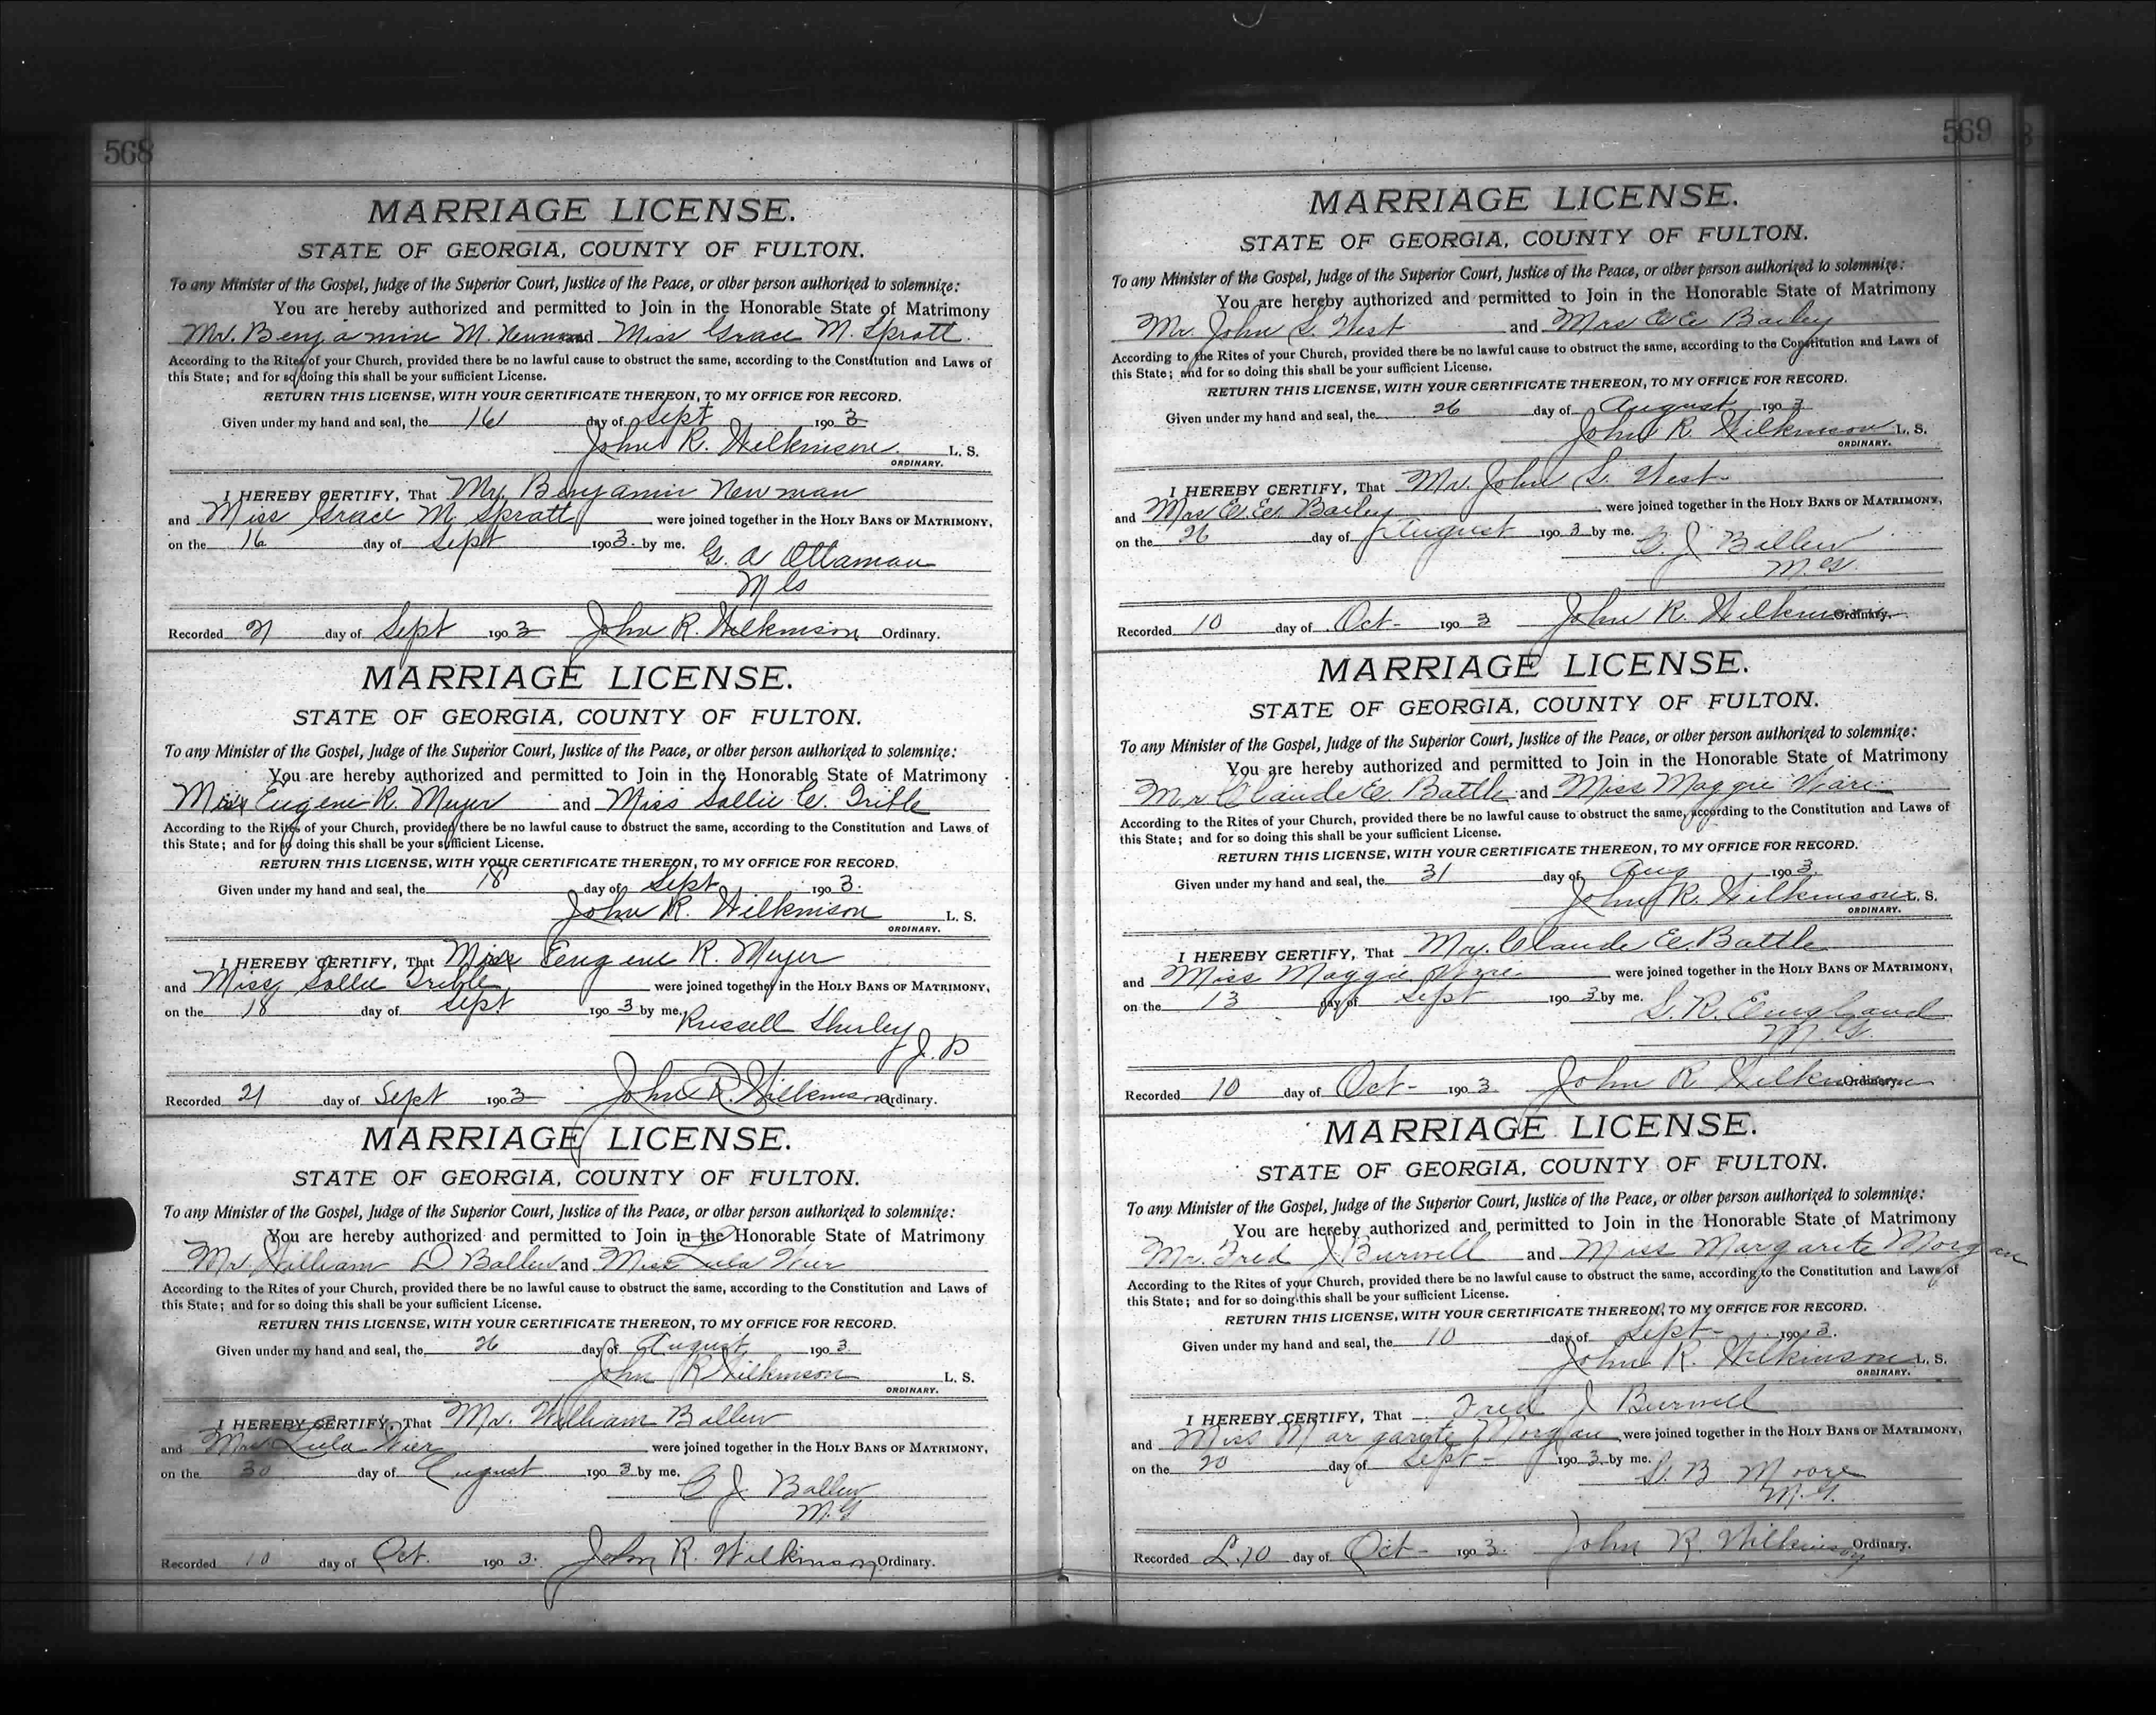 568
MARRIAGE LICENSE.
STATE OF GEORGIA, COUNTY OF FULTON.
To any Minister of the Gospel, Judge of the Superior Court, Justice of the Peace, or other person authorized to solemnize:
You are hereby authorized and permitted to Join in the Honorable State of Matrimony
Mr. Benjamin M. Newman and Miss Grace M. Spratt.
According to the Rites of your Church, provided there be no lawful cause to obstruct the same, according to the Constitution and Laws of
this State; and for so doing this shall be your sufficient License.
RETURN THIS LICENSE, WITH YOUR CERTIFICATE THEREON, TO MY OFFICE FOR RECORD.
Given under my hand and seal, the 16 day of Sept 1903
John R. Wilkinson L. S.
ORDINARY.
I HEREBY CERTIFY, That Mr. Benjamin Newman
and Miss Grace M. Spratt were joined together in the HOLY BANS OF MATRIMONY,
on the 16 day of Sept 1903. by me.
G. A.
Recorded 21 day of Sept 1903 John R. Wilkinson Ordinary.
MARRIAGE LICENSE.
STATE OF GEORGIA, COUNTY OF FULTON.
To any Minister of the Gospel, Judge of the Superior Court, Justice of the Peace, or other person authorized to solemnize:
You are hereby authorized and permitted to Join in the Honorable State of Matrimony
Eugene R. Meyer and Miss Sallie C. Trible
According to the Rites of your Church, provided there be no lawful cause to obstruct the same, according to the Constitution and Laws of
this State; and for so doing this shall be your sufficient License.
RETURN THIS LICENSE, WITH YOUR CERTIFICATE THEREON, TO MY OFFICE FOR RECORD.
Given under my hand and seal, the 18 day of Sept 1903.
John R. Wilkinson L. S.
ORDINARY.
I HEREBY CERTIFY, That Eugene R. Meyer
and Miss Sallie Trible were joined together in the HOLY BANS OF MATRIMONY,
on the 18 day of Sept. 1903 by me.
Russell Shurley
J. P
Recorded 21 day of Sept 1903 John R. Wilkinson Ordinary.
MARRIAGE LICENSE.
STATE OF GEORGIA, COUNTY OF FULTON.
To any Minister of the Gospel, Judge of the Superior Court, Justice of the Peace, or other person authorized to solemnize:
You are hereby authorized and permitted to Join in the Honorable State of Matrimony
Mr William D Ballew and Miss Lula Wier
According to the Rites of your Church, provided there be no lawful cause to obstruct the same, according to the Constitution and Laws of
this State; and for so doing this shall be your sufficient License.
RETURN THIS LICENSE, WITH YOUR CERTIFICATE THEREON, TO MY OFFICE FOR RECORD.
Given under my hand and seal, the 26 day of August 1903.
John R Wilkinson L. S.
ORDINARY.
I HEREBY CERTIFY, That Mr. William Ballew
and Lula Wier were joined together in the HOLY BANS OF MATRIMONY,
on the 30 day of August 1903 by me.
J Ballew
M.G
Recorded 10 day of Oct. 1903. John R. Wilkinson Ordinary.
569
MARRIAGE LICENSE.
STATE OF GEORGIA, COUNTY OF FULTON.
To any Minister of the Gospel, Judge of the Superior Court, Justice of the Peace, or other person authorized to solemnize:
You are hereby authorized and permitted to Join in the Honorable State of Matrimony
Mr. John S. West and Mrs E. E. Bailey
According to the Rites of your Church, provided there be no lawful cause to obstruct the same, according to the Constitution and Laws of
this State; and for so doing this shall be your sufficient License.
RETURN THIS LICENSE, WITH YOUR CERTIFICATE THEREON, TO MY OFFICE FOR RECORD.
Given under my hand and seal, the 26 day of August 1903
John R. Wilkinson L. S.
ORDINARY.
I HEREBY CERTIFY, That Mr. John S. West
and Mrs E. E. Bailey were joined together in the HOLY BANS OF MATRIMONY,
on the 26 day of August 1903 by me.
J Ballew
M.G.
Recorded 10 day of Oct- 1903 John R. Wilkinson Ordinary.
MARRIAGE LICENSE.
STATE OF GEORGIA, COUNTY OF FULTON.
To any Minister of the Gospel, Judge of the Superior Court, Justice of the Peace, or other person authorized to solemnize:
You are hereby authorized and permitted to Join in the Honorable State of Matrimony
Mr Claude E. Battle and Miss Maggie Ware
According to the Rites of your Church, provided there be no lawful cause to obstruct the same, according to the Constitution and Laws of
this State; and for so doing this shall be your sufficient License.
RETURN THIS LICENSE, WITH YOUR CERTIFICATE THEREON, TO MY OFFICE FOR RECORD.
Given under my hand and seal, the 31 day of Aug 1903
John R. Wilkinson L. S.
ORDINARY.
I HEREBY CERTIFY, That Mr. Claude E. Battle
and Miss Maggie Ware were joined together in the HOLY BANS OF MATRIMONY,
on the 13 day of Sept 1903 by me.
S. R. England
M. G.
Recorded 10 day of Oct- 1903. John R Wilkinson Ordinary.
MARRIAGE LICENSE.
STATE OF GEORGIA, COUNTY OF FULTON.
To any Minister of the Gospel, Judge of the Superior Court, Justice of the Peace, or other person authorized to solemnize:
You are hereby authorized and permitted to Join in the Honorable State of Matrimony
Mr. Fred J Burwell and Miss Margarite Morgan
According to the Rites of your Church, provided there be no lawful cause to obstruct the same, according to the Constitution and Laws of
this State; and for so doing this shall be your sufficient License.
RETURN THIS LICENSE, WITH YOUR CERTIFICATE THEREON, TO MY OFFICE FOR RECORD.
Given under my hand and seal, the 10 day of Sept- 1903.
John R. Wilkinson L. S.
ORDINARY.
I HEREBY CERTIFY, That Fred J Burwell
and Miss Margarite Morgan were joined together in the HOLY BANS OF MATRIMONY,
on the 20 day of Sept- 1903. by me.
S. B Moore
M.G.
Recorded 10 day of Oct- 1903. John R. Wilkinson Ordinary.